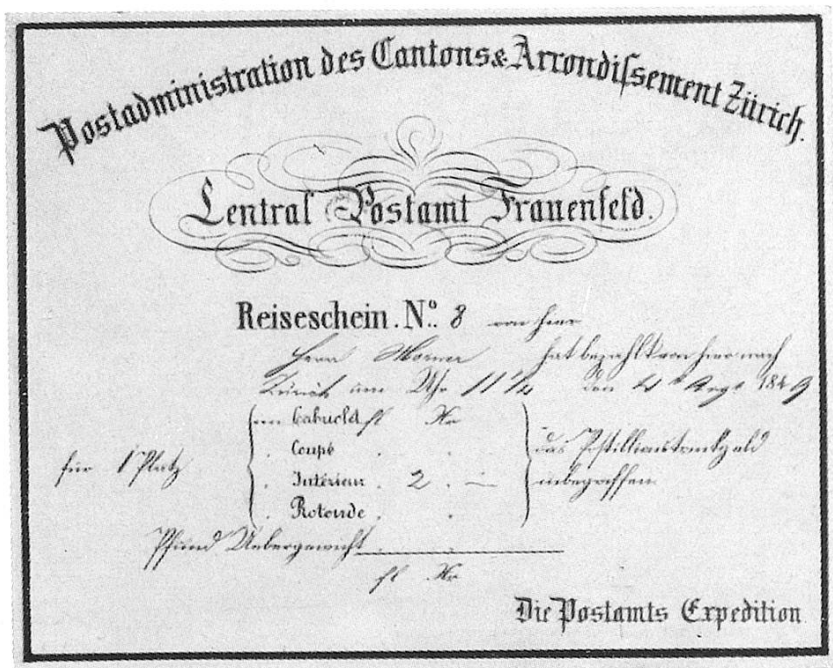 Postadministration des Cantons & Arrondiſsement Zürich.
Central Postamt Frauenfeld.
Reiseschein. No. 8 von hier
Herr hat bezahlt von hier nach
Zürich um Uhr 11 1/2 den Aug. 1849
im Cabriolet fl Xr
für 1 Platz
. Coupé . .
. Intérieur . 2 . —
. Rotonde . .
das Postillionstrinkgeld
inbegriffen.
Pfund Uebergewicht
fl Xr
Die Postamts Expedition